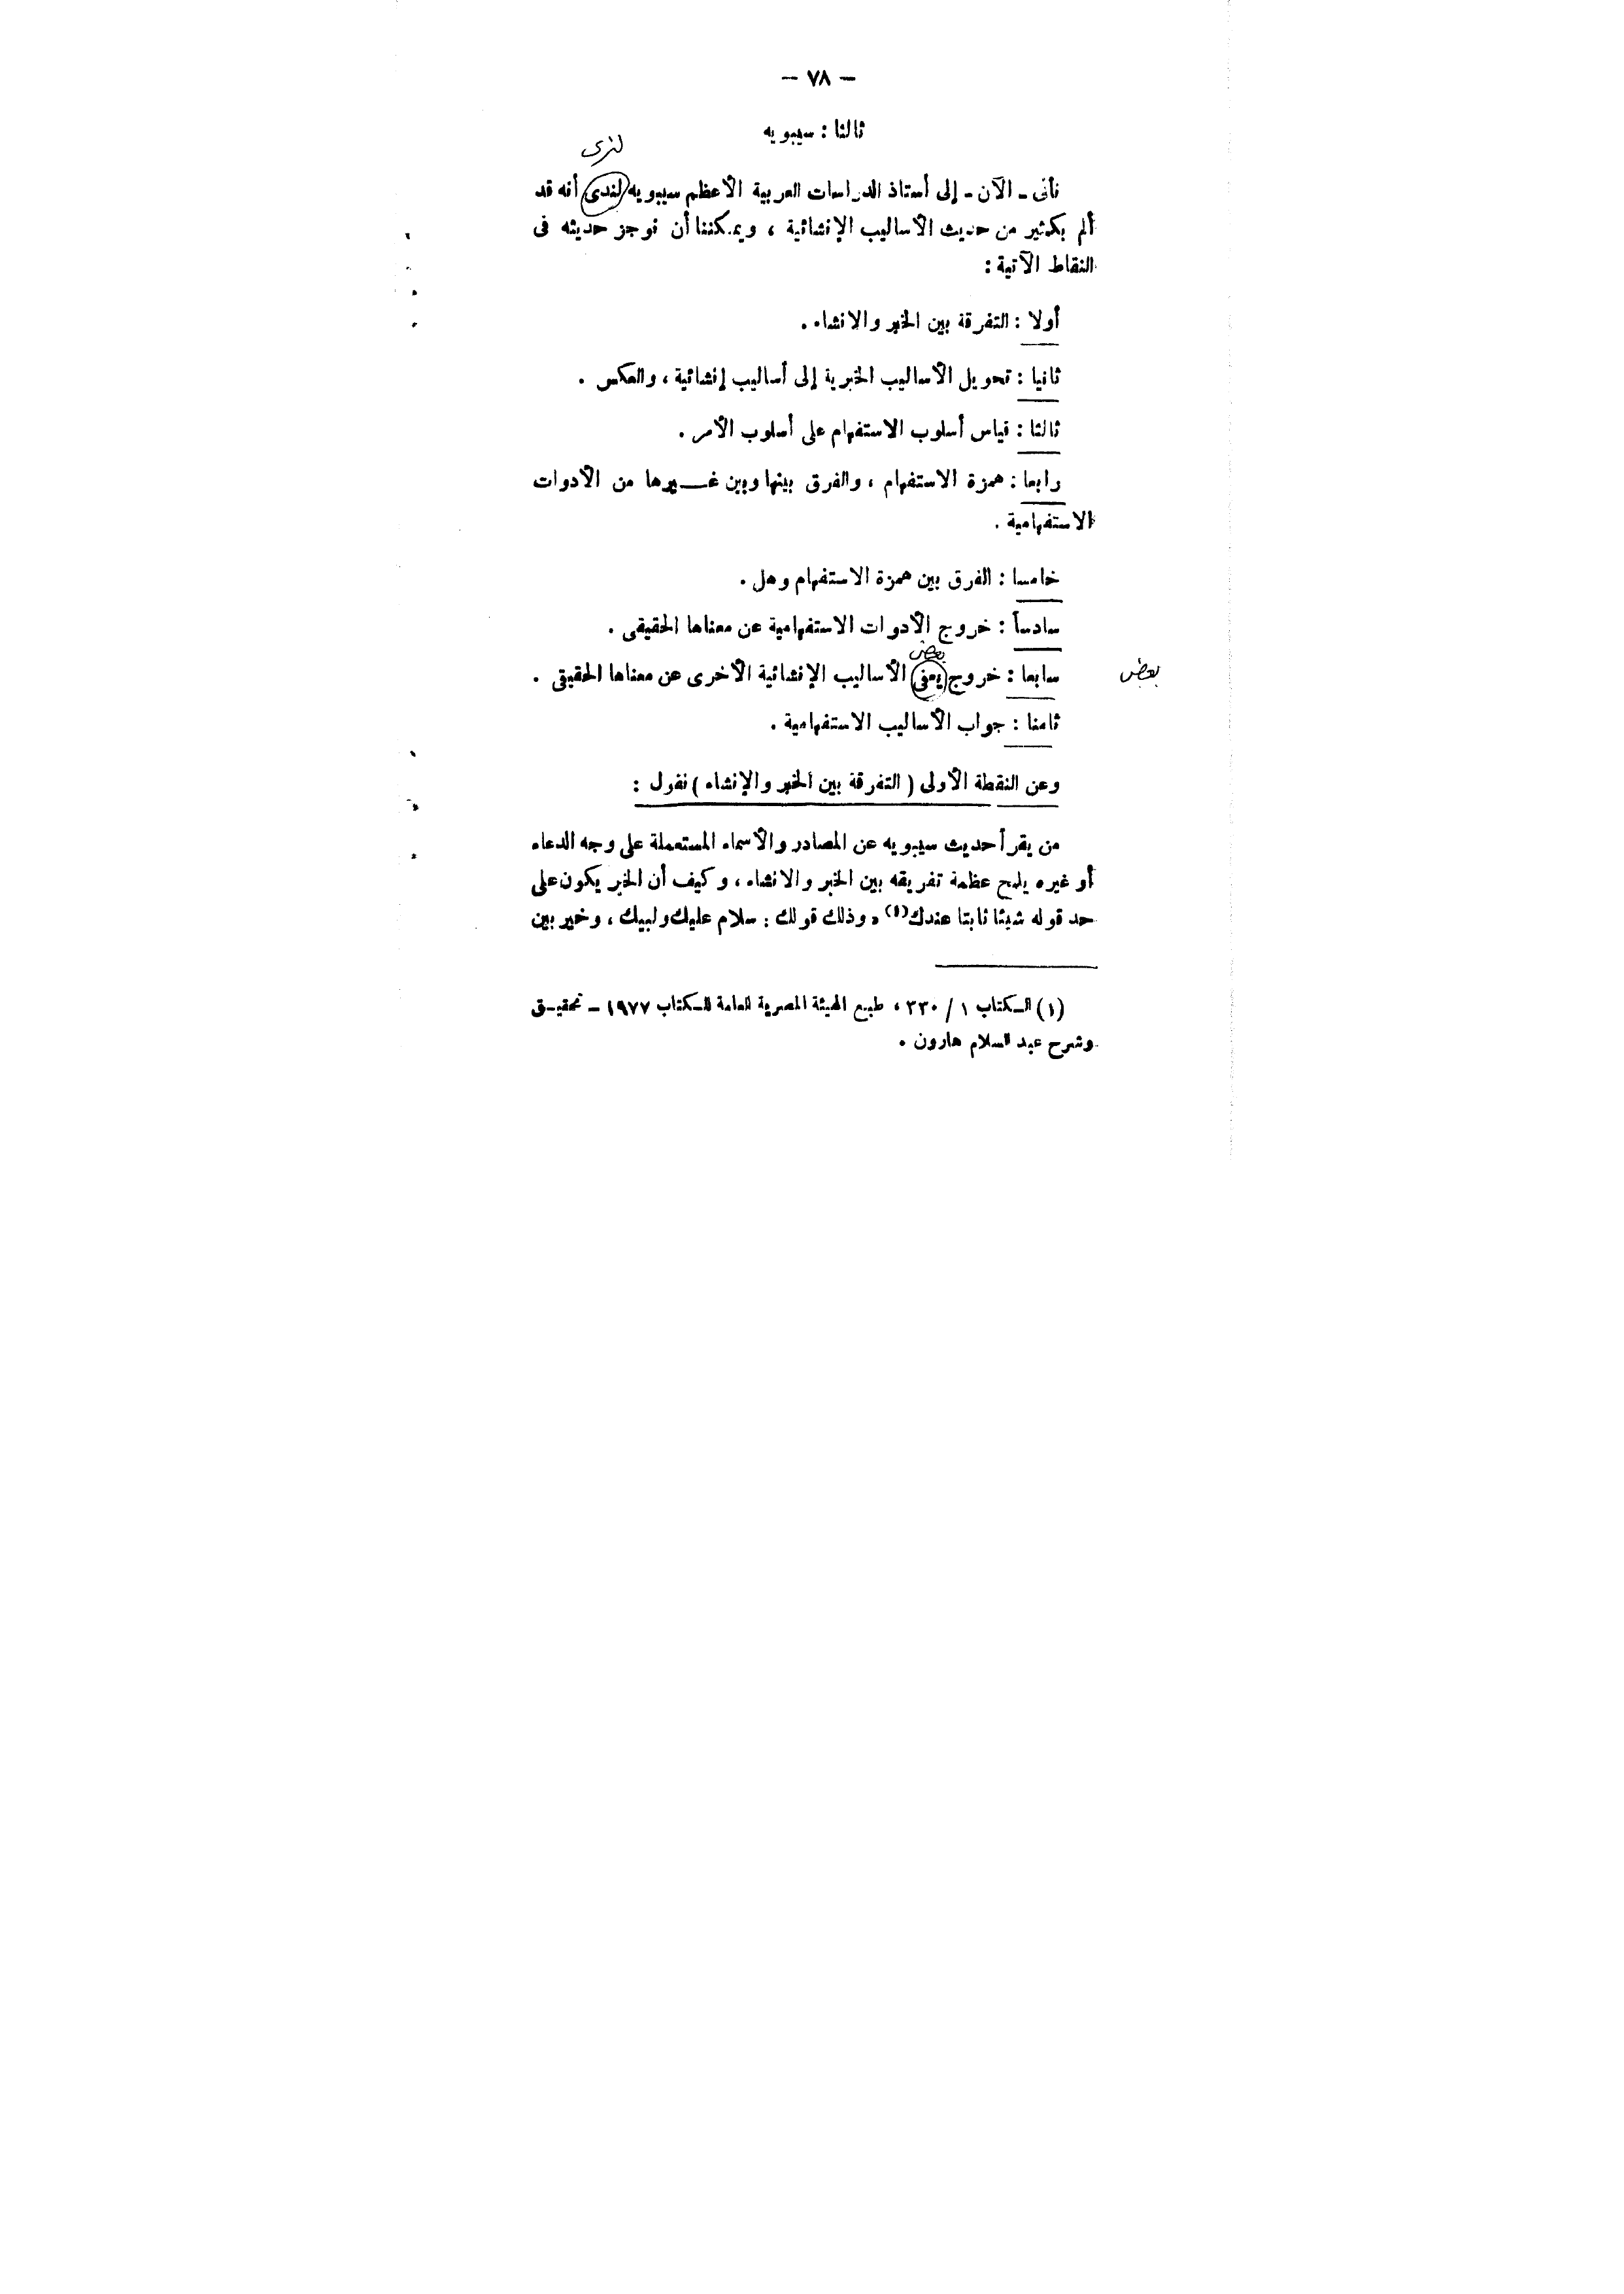 — ٧٨ —
ثالثا : سيبويه
لنرى
نأتى ـ الآن ـ إلى أستاذ الدراسات العربية الأعظم سيبويه لندى أنه قد
ألم بكثير من حديث الأساليب الإنشائية ، ويمكننا أن نوجز حديثه فى
النقاط الآتية :
أولا : التفرقة بين الخبر والانشاء .
ثانيا : تحويل الأساليب الخبرية إلى أساليب إنشائية ، والعكس .
ثالثا : قياس أسلوب الاستفهام على أسلوب الأمر .
رابعا : همزة الاستفهام ، والفرق بينها وبين غـــيرها من الأدوات
الاستفهامية .
خامسا : الفرق بين همزة الاستفهام وهل .
سادساً : خروج الأدوات الاستفهامية عن معناها الحقيقى .
بعض
سابعا : خروج يعنى الأساليب الإنشائية الأخرى عن معناها الحقيقى .
بعض
ثامنا : جواب الأساليب الاستفهامية .
وعن النقطة الأولى ( التفرقة بين الخبر والإنشاء ) نقول :
من يقرأ حديث سيبويه عن المصادر والأسماء المستعملة على وجه الدعاء
أو غيره يلمح عظمة تفريقه بين الخبر والانشاء ، وكيف أن الخبر يكون على
حد قوله شيئا ثابتا عندك (١) ، وذلك قولك : سلام عليك ولبيك ، وخير بين
(١) الـكتاب ١ / ٣٣٠ ، طبع الهيئة المصرية العامة للـكتاب ١٩٧٧ ـ تحقيـق
وشرح عبد السلام هارون .